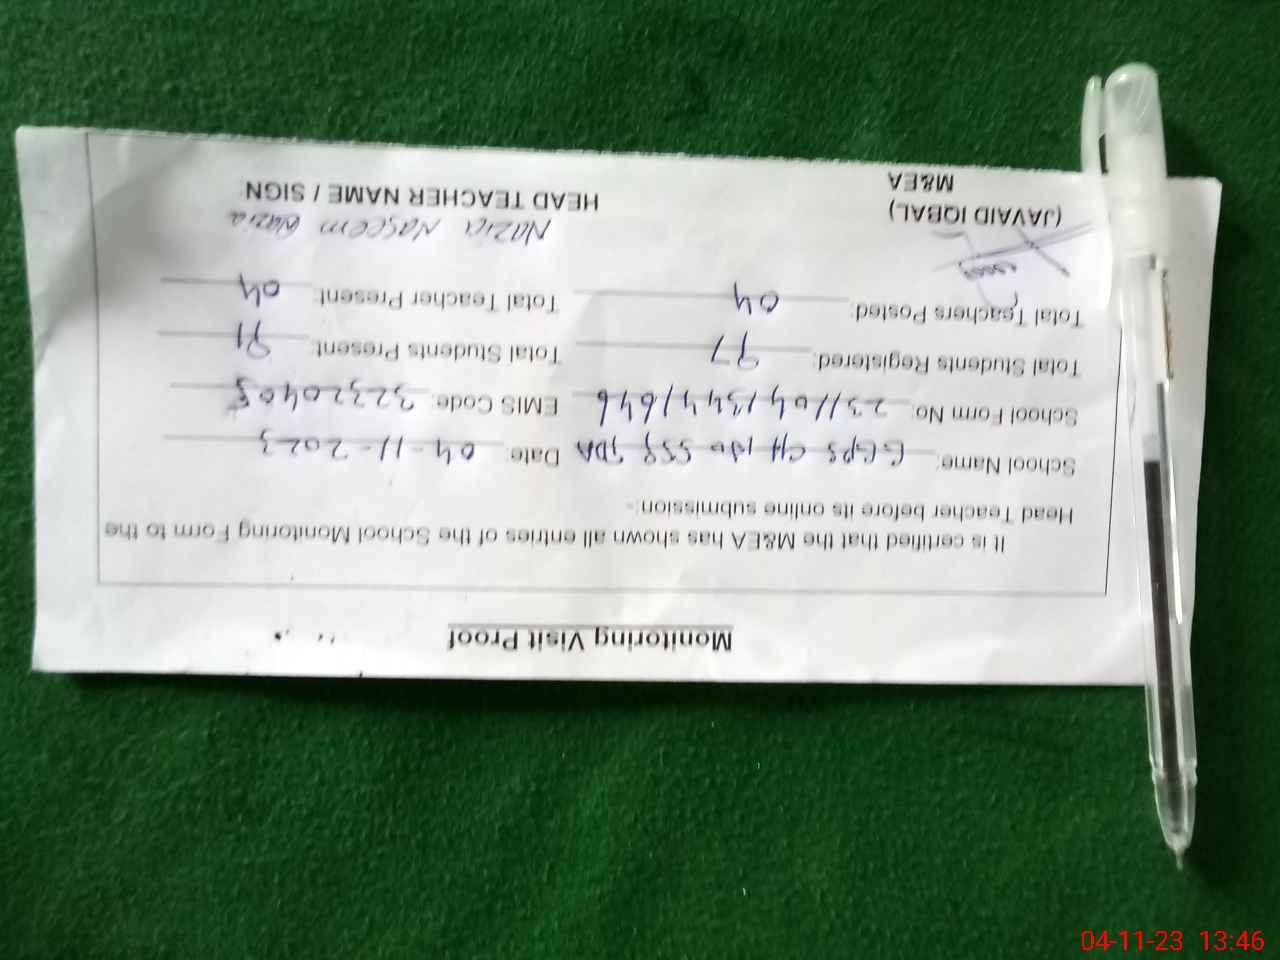 Monitoring Visit Proof
It is certified that the M&EA has shown all entries of the School Monitoring Form to the
Head Teacher before its online submission:-
School Name: GGPS CH No 559 TDA Date: 04-11-2023
School Form No: 23110413441646 EMIS Code: 32320405
Total Students Registered: 97 Total Students Present: 91
Total Teachers Posted: 04 Total Teacher Present: 04
Nazia Naseem Nazia
(JAVAID IQBAL)
M&EA
HEAD TEACHER NAME / SIGN:
04-11-23 13:46